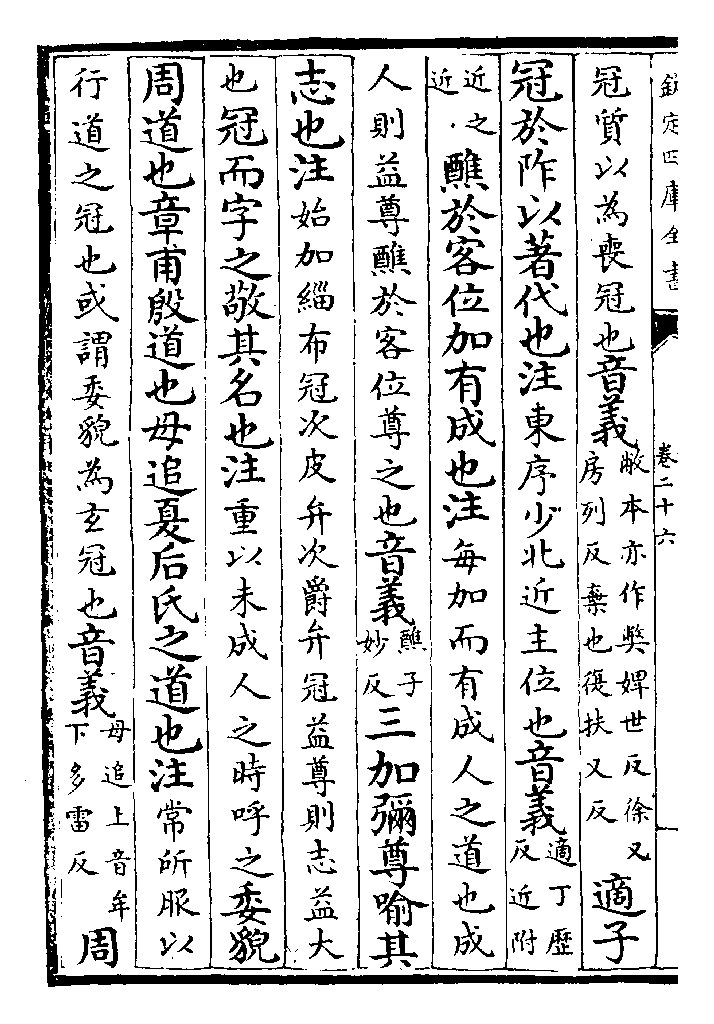 欽定四庫全書
卷二十六
冠質以為喪冠也音義敝本亦作獘婢世反徐又房列反棄也復扶又反適子
冠於阼以著代也注東序少北近主位也音義適丁歷反近附
近之近醮於客位加有成也注每加而有成人之道也成
人則益尊醮於客位尊之也音義醮子妙反三加彌尊喻其
志也注始加緇布冠次皮弁次爵弁冠益尊則志益大
也冠而字之敬其名也注重以未成人之時呼之委貌
周道也章甫殷道也毋追夏后氏之道也注常所服以
行道之冠也或謂委貌為玄冠也音義毋追上音牟下多雷反周